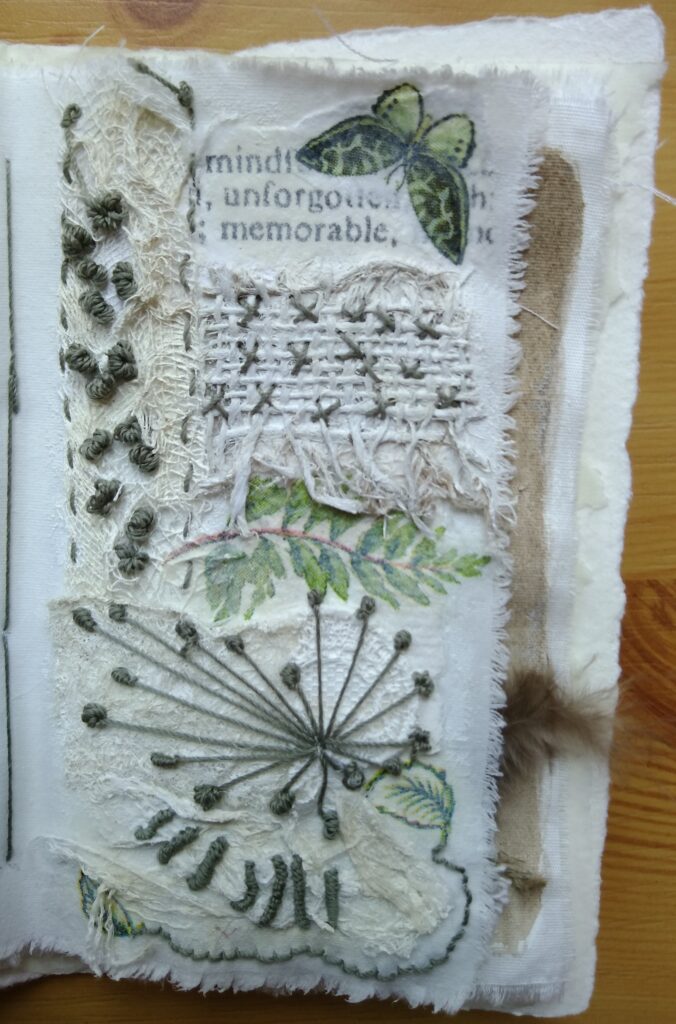 mindf
, unforgotten
; memorable,